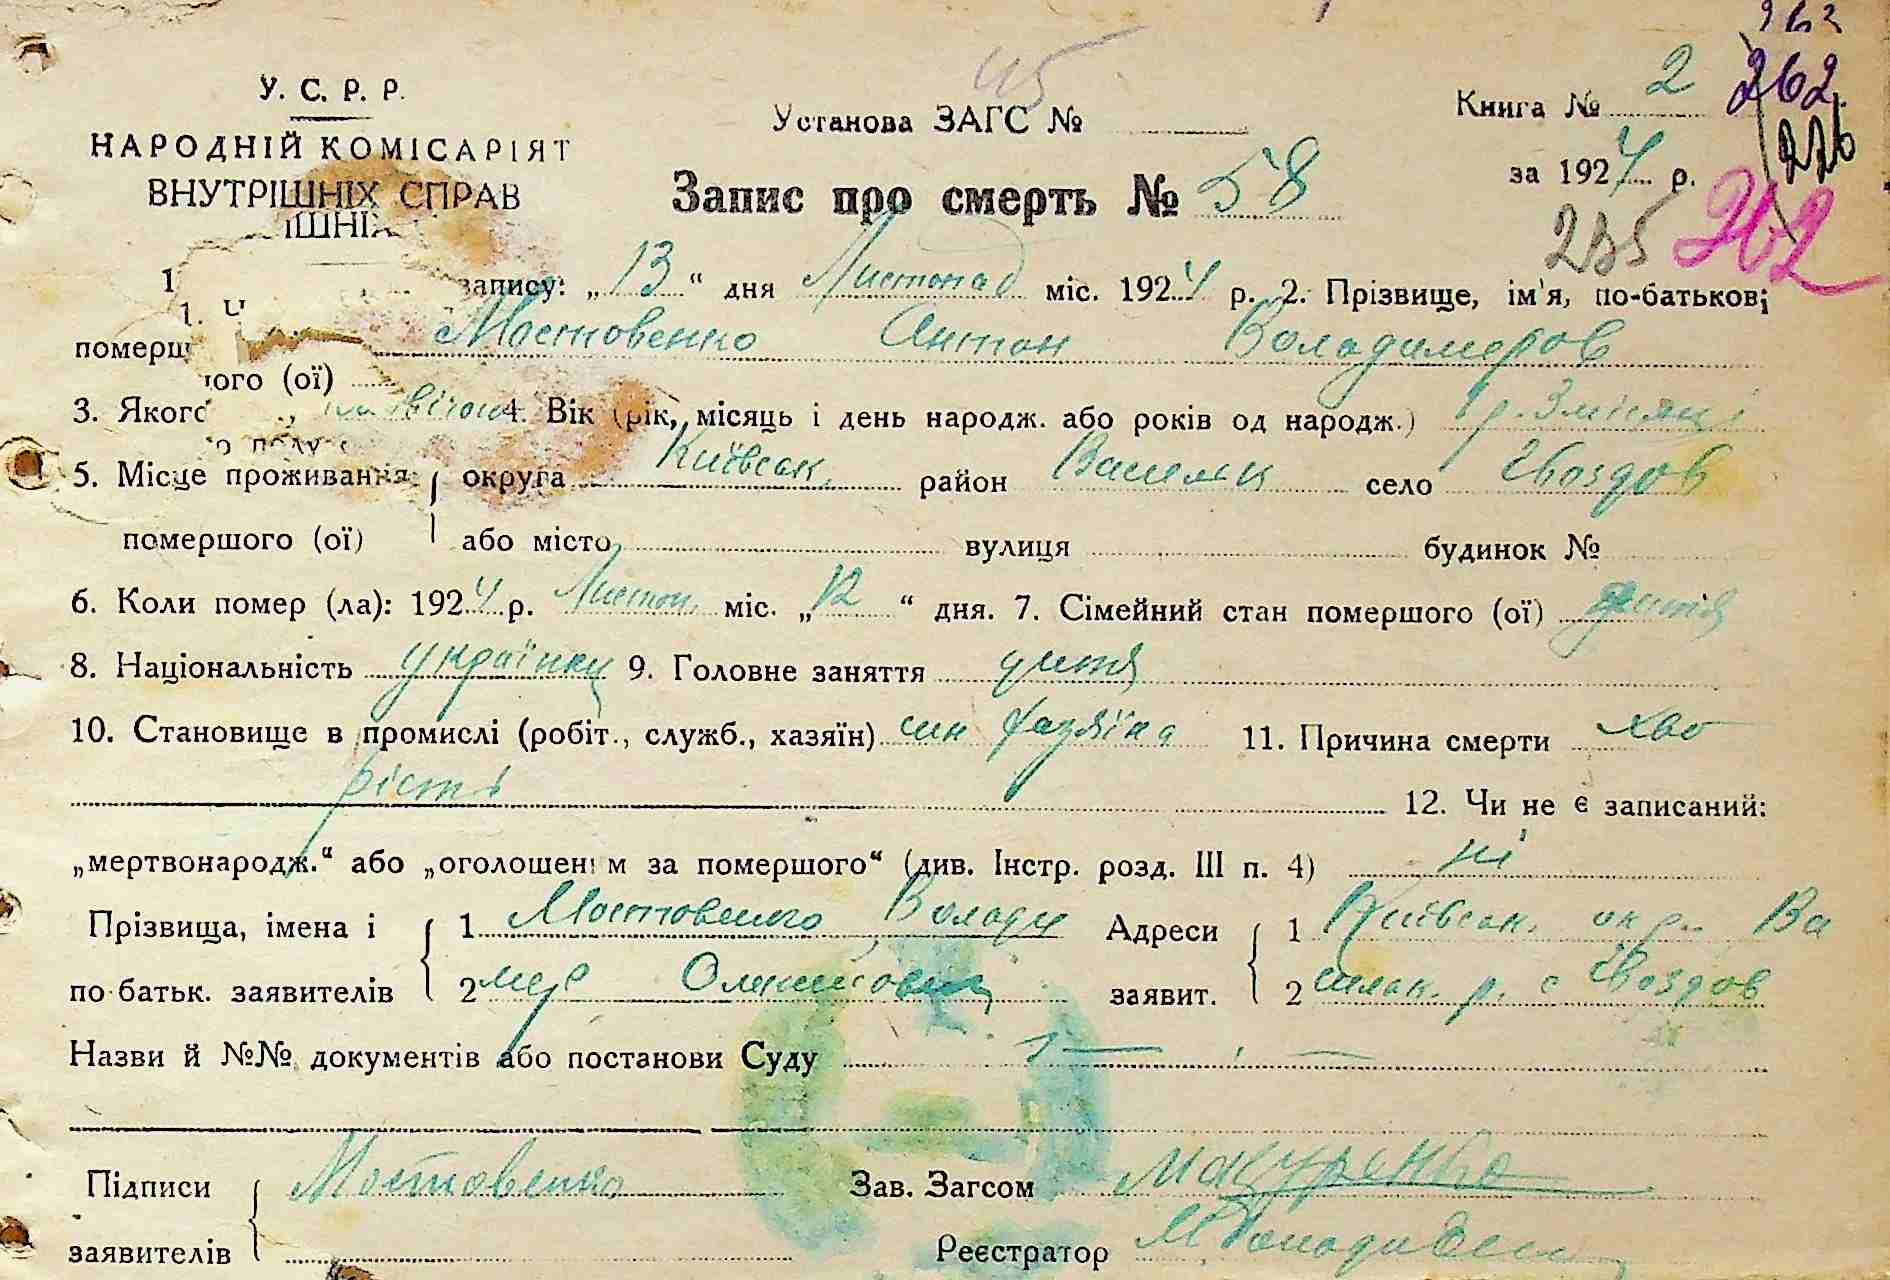 У. С. Р. Р.
НАРОДНІЙ КОМІСАРІЯТ
ВНУТРІШНІХ СПРАВ
ІШНІХ
45
Установа ЗАГС №
Запис про смерть № 58
Книга № 2
за 1924 р.
262
262
226
235 262
1 запису: „13“ дня Листопад міс. 1924 р. 2. Прізвище, ім'я, по-батькові
1. Ч
померш Мостовенко Антон Володимеров
ого (ої)
3. Якого 4. Вік (рік, місяць і день народж. або років од народж.) 1 р. 3 місяці
о полу
5. Місце проживання округа Київськ. район Васильк село Гвоздов
помершого (ої) або місто вулиця будинок №
6. Коли помер (ла): 1924 р. Листоп. міс. „12“ дня. 7. Сімейний стан помершого (ої) дитя
8. Національність українец 9. Головне заняття дитя
10. Становище в промислі (робіт., служб., хазяїн) син хазяїна 11. Причина смерти хво
рість 12. Чи не є записаний:
„мертвонародж.“ або „оголошеним за помершого“ (див. Інстр. розд. III п. 4) ні
Прізвища, імена і 1 Мостовенко Володи Адреси 1 Київськ. окр. Ва
по-батьк. заявителів 2 мер заявит. 2 сильк. р. с Гвоздов
Назви й №№ документів або постанови Суду —
Підписи Мостовенко Зав. Загсом Макуренко
заявителів Реєстратор